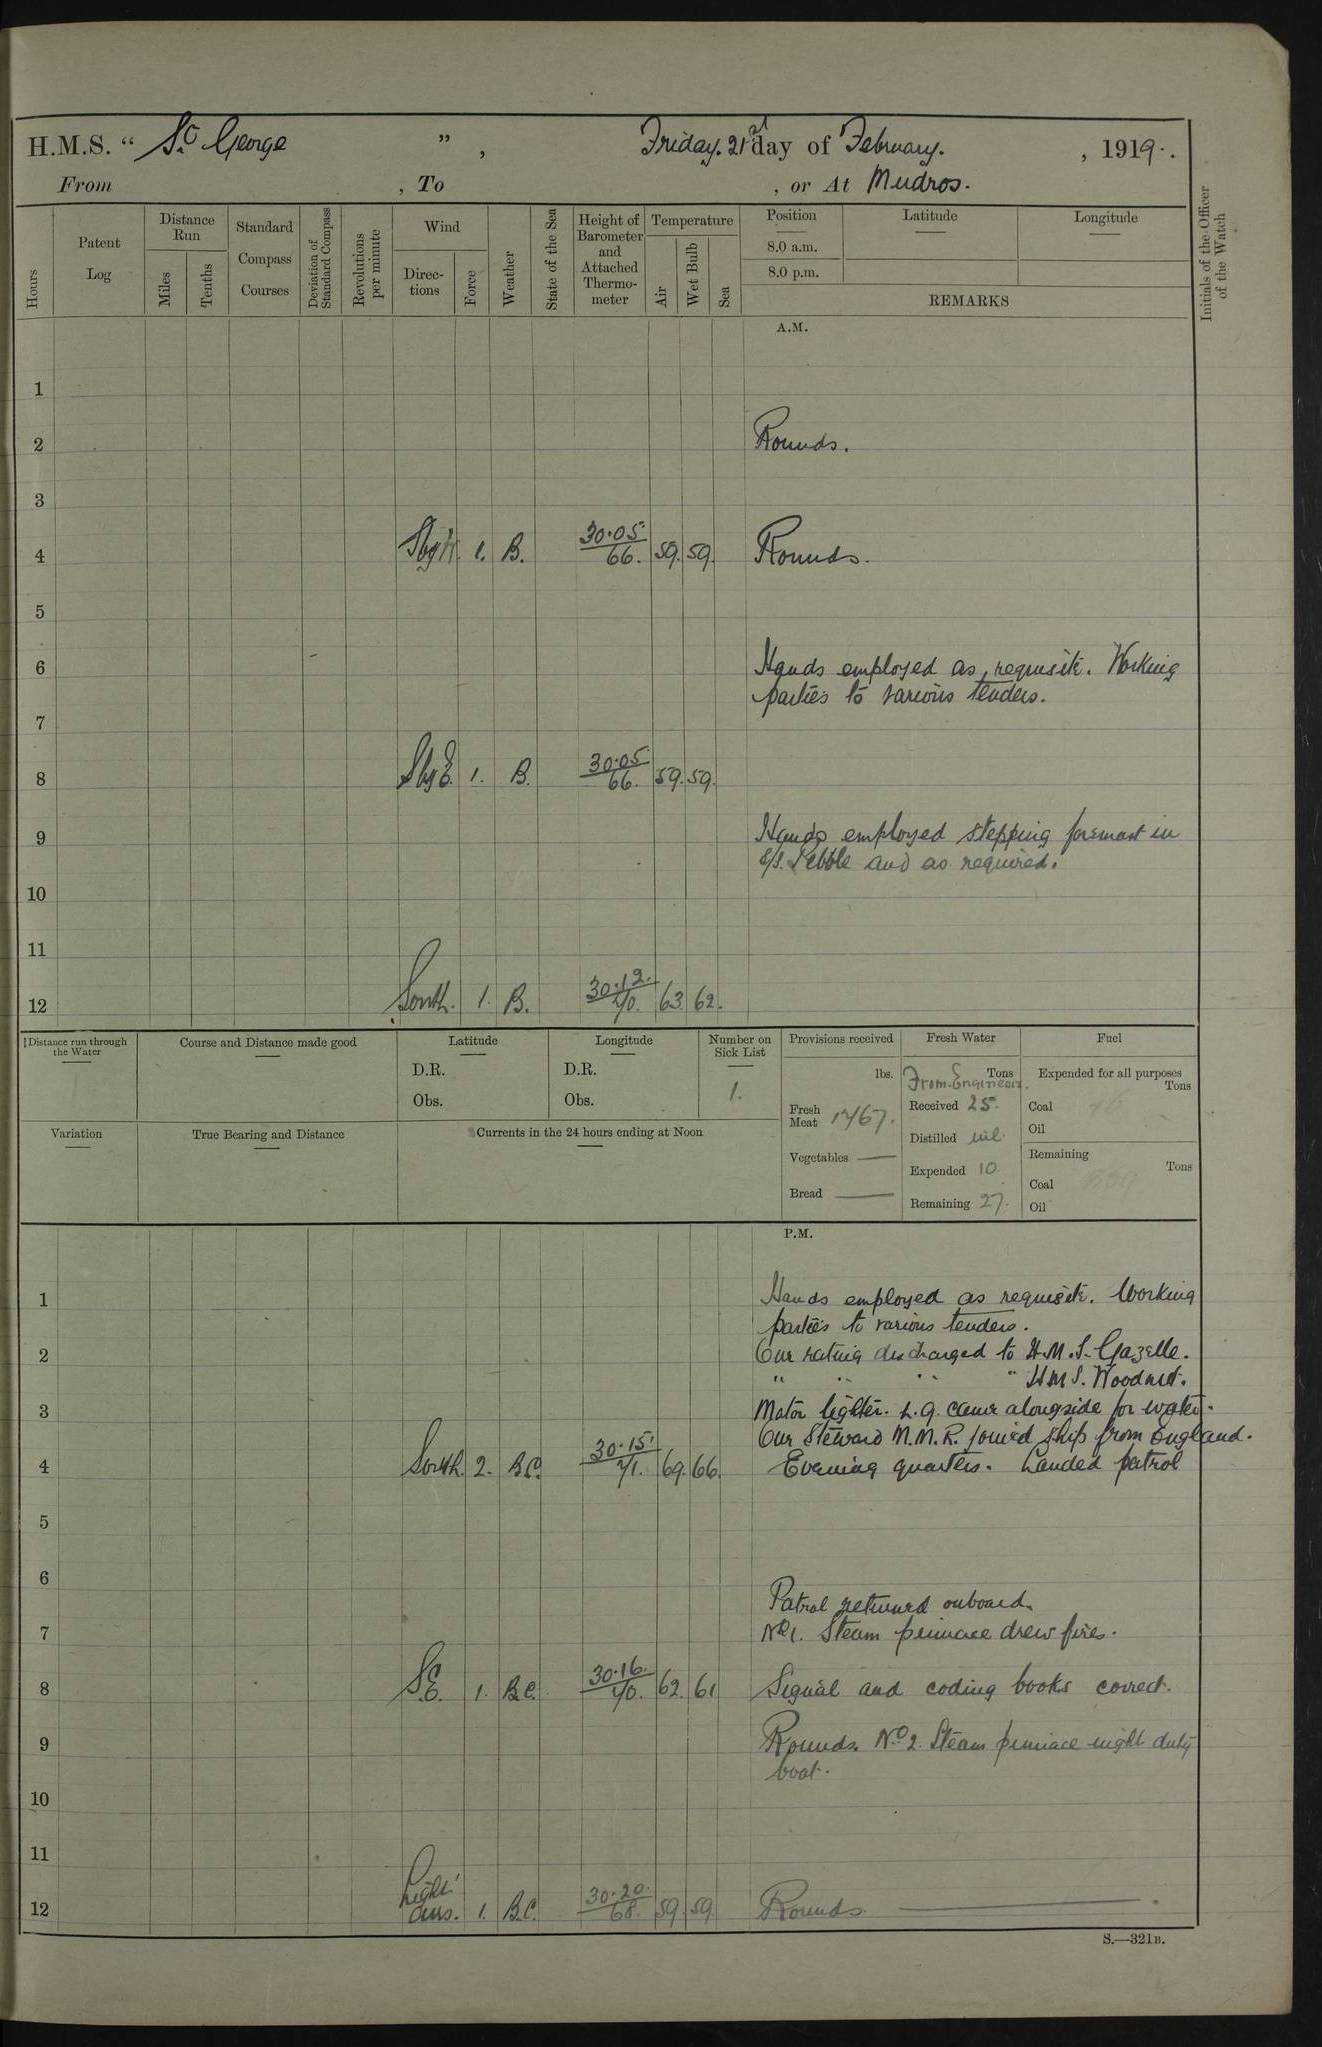 H.M.S. “ St. George ” , Friday. 21st day of February. , 1919.
From , To , or At Mudros.
Hours
Patent Log
Distance Run
Miles
Tenths
Standard Compass Courses
Deviation of Standard Compass
Revolutions per minute
Wind
Directions
Force
Weather
State of the Sea
Height of Barometer and Attached Thermometer
Temperature
Air
Wet Bulb
Sea
Position
8.0 a.m.
8.0 p.m.
Latitude
Longitude
REMARKS
Initials of the Officer of the Watch
A.M.
1
2 Rounds.
3
4 SbyW. 1. B. 30.05 66. 59. 59. Rounds.
5
6 Hands employed as requisite. Working
parties to various tenders.
7
8 SbyE. 1. B. 30.05. 66. 59. 59.
9 Hands employed stepping foremast in
s/s. Pebble and as required.
10
11
12 South. 1. B. 30.12. 70. 63. 62.
Distance run through the Water
Course and Distance made good
Latitude
D.R.
Obs.
Longitude
D.R.
Obs.
Number on Sick List
1.
Provisions received
lbs.
Fresh Meat 1767.
Vegetables —
Bread —
Fresh Water
Tons
From Engineers.
Received 25.
Distilled nil.
Expended 10
Remaining 27.
Fuel
Expended for all purposes
Tons
Coal
Oil
Remaining
Tons
Coal
Oil
Variation
True Bearing and Distance
Currents in the 24 hours ending at Noon
P.M.
1 Hands employed as requisite. Working
parties to various tenders.
2 One rating discharged to H.M.S. Gazelle.
" " " " HMS. Woodnut.
3 Motor lighter. L.9. came alongside for water.
One Steward M.M.R. joined ship from England.
4 South. 2. B.C. 30.15. 71. 69. 66. Evening quarters. Landed patrol
5
6
Patrol returned onboard.
7 No 1. Steam pinnace drew fires.
8 S.E. 1. B.C. 30.16. 70. 62. 61 Signal and coding books correct.
9 Rounds. No 2. Steam pinnace night duty
boat.
10
11
12 Light airs. 1. B.C. 30.20. 68. 59. 59. Rounds. —
S.—321B.